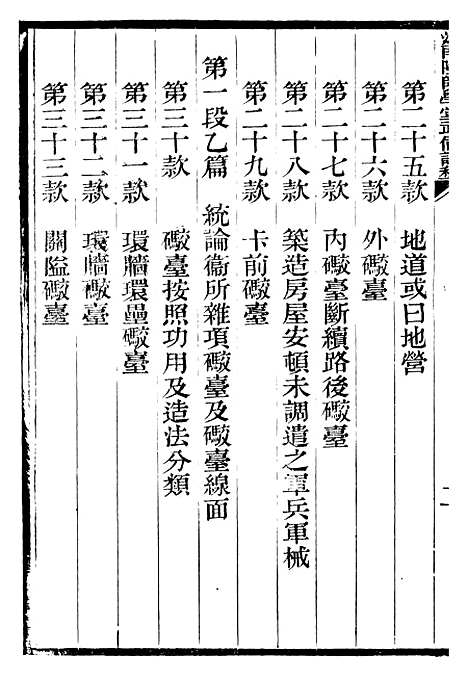 第二十五款　地道或曰地營
第二十六款　外礮臺
第二十七款　內礮臺斷續路後礮臺
第二十八款　築造房屋安頓未調遣之軍兵軍械
第二十九款　卡前礮臺
第一段乙篇　統論衞所雜項礮臺及礮臺線面
第三十款　礮臺按照功用及造法分類
第三十一款　環牆環壘礮臺
第三十二款　環牆礮臺
第三十三款　關隘礮臺